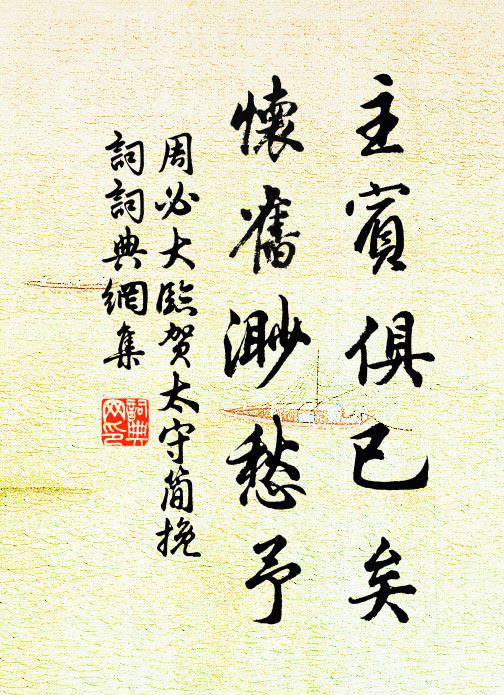 主賓俱已矣
懷舊渺愁予
周必大臨贺太守简挽
詞詞典網集
詞典网印